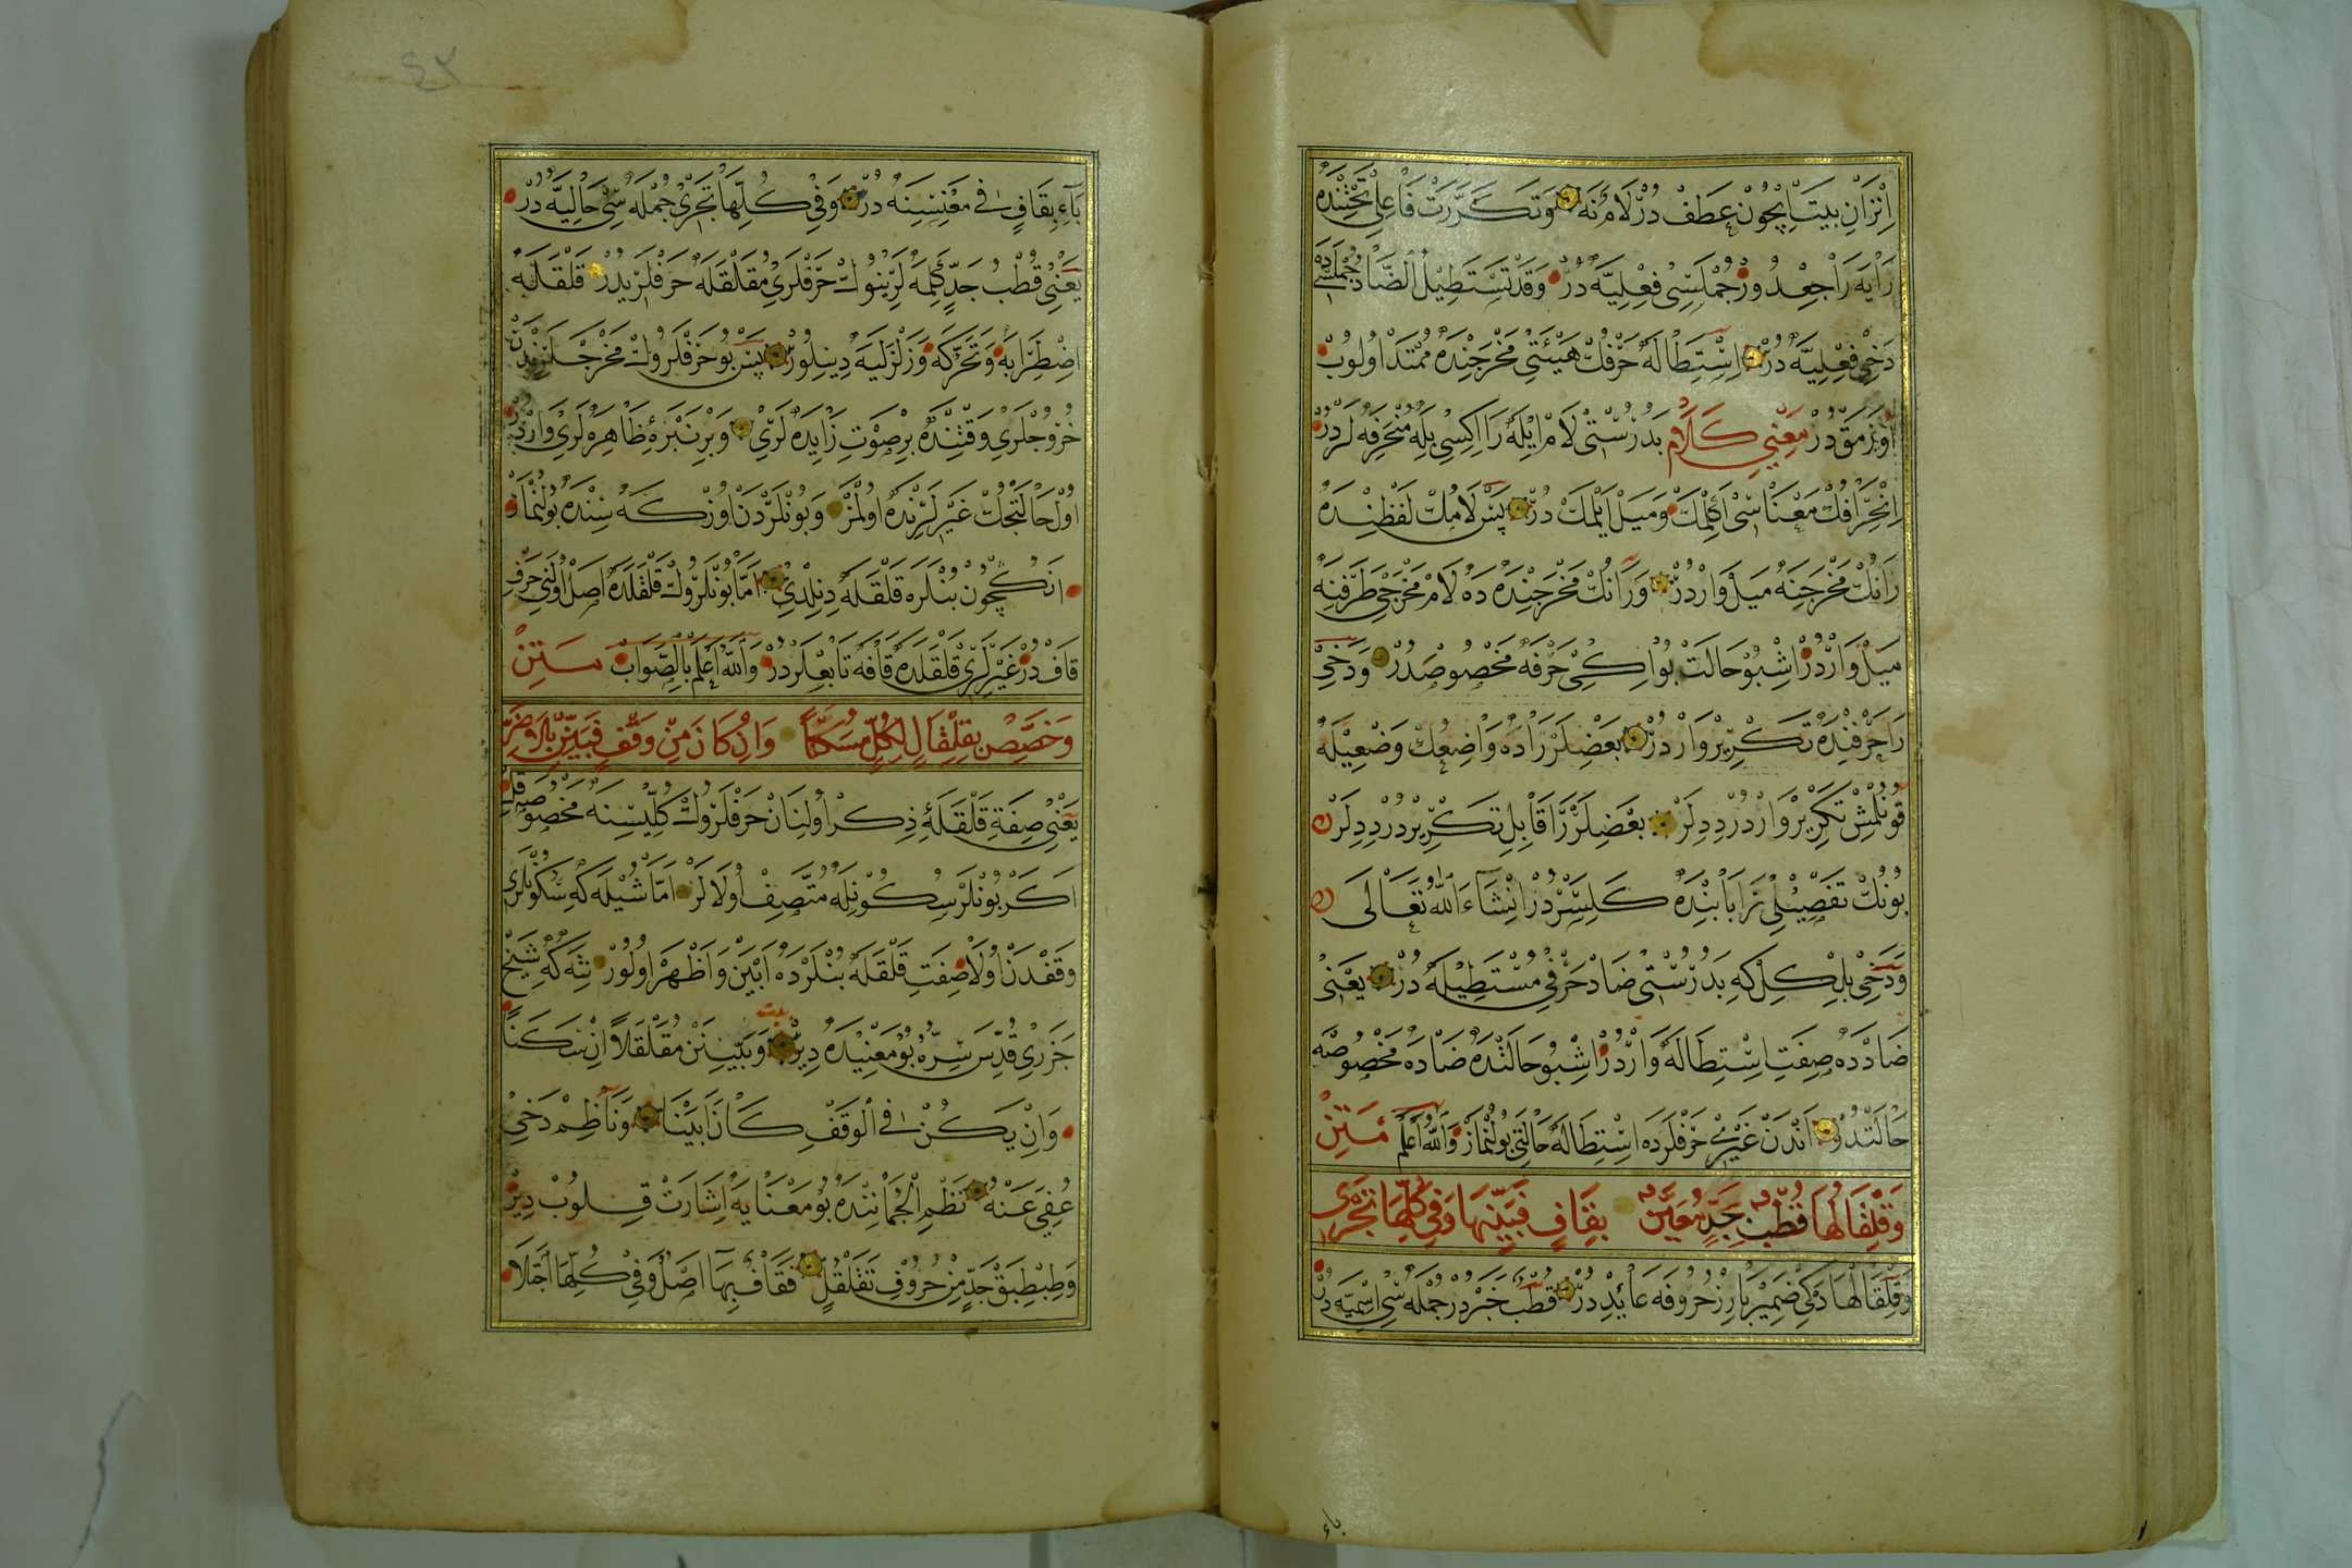 اِتِّزَانِ بَيْتَ اِيچُونْ عَطَفْ دُرْ لَامَنَه وَتَكَرَّرَتْ فَاعِلِ تَحْتِنْدَه
رَايَه رَاجِعْدُورْ جُمْلَسِى فِعْلِيَّه دُرْ وَقَدْ تَسْتَطِيلُ الضَّادُ جُمْلَسِى
دَخِى فِعْلِيَّه دُرْ اِسْتِطَالَه حَرْفُكْ هَيْئَتِى مَخْرَجِنْدَه مُمْتَدْ اُولُوبْ
اُوزَمَقْ دُرْ مَعْنِىِ كَلَامْ بَدُرُسْتِى لَامْ اِيْلَه رَا اِكِسِى بِلَه مُنْحَرِفَه لَرْدُرْ
اِنْحِرَافُكْ مَعْنَاسِى اَكِلْمَكْ وَمَيْلْ اَيْلَمَكْ دُرْ پَسْ لَامُكْ لَفْظِنْدَه
رَانُكْ مَخْرَجِنَه مَيْلْ وَارْدُرْ وَرَانُكْ مَخْرَجِنْدَه دَه لَامْ مَخْرَجِى طَرَفِنَه
مَيْلْ وَارْدُرْ اِشْبُو حَالَتْ بُو اِكِى حَرْفَه مَخْصُوصْدُرْ وَدَخِى
رَا حَرْفِنْدَه تَكْرِيرْ وَارْدُرْ بَعْضِلَرْ رَادَه وَاضِعُكْ وَضْعِيْلَه
قُونُلْمِشْ تَكْرِيرْ وَارْدُرْ دِدِلَرْ بَعْضِلَرْ رَا قَابِلِ تَكْرِيرْدُرْ دِدِلَرْ
بُونُكْ تَفْصِيْلِى رَا بَابِنْدَه كَلِسَرْدُرْ اِنْشَاءَ اللهُ تَعَالَى
وَدَخِى بِلْكِلْ كَه بَدُرُسْتِى ضَادْ حَرْفِى مُسْتَطِيْلَه دُرْ يَعْنِى
ضَادْدَه صِفَتِ اِسْتِطَالَه وَارْدُرْ اِشْبُو حَالَتْدَه ضَادَه مَخْصُوصَه
حَالَتْدُرْ اَنْدَنْ غَيْرِى حَرْفْلَرْدَه اِسْتِطَالَه حَالَتِى بُولُنْمَازْ وَاللهُ اَعْلَمْ مَتِنْ
وَقَلْقَالُهَا قُطْبُ جَدٍّ مُعَيَّنْ بِقَافٍ فَبَيِّنْهَا وَفِى كُلِّهَا تَجْرِى
وَقَلْقَالُهَادَكِى ضَمِيرْ بَارِزْ حُرُوفَه عَائِدْ دُرْ قُطْبُ خَبَرْدُرْ جُمْلَه سِى اِسْمِيَّه دُرْ
باء
٤٢
بَاءِ بِقَافٍ فِى مَعْنِسِنَه دُرْ وَفِى كُلِّهَا تَجْرِى جُمْلَه سِى حَالِيَّه دُرْ
يَعْنِى قُطْبُ جَدٍّ كَلِمَه لَرِينُوكْ حَرْفْلَرِى مُقَلْقَلَه حَرْفْلَرِيدُرْ قَلْقَلَه
اِضْطِرَابَه وَتَحَرُّكَه وَزَلْزَلَيَه دِينِلُورْ پَسْ بُو حَرْفْلَرُوكْ مَخْرَجْلَرِنْدَنْ
خُرُوجْلَرِى وَقْتِنْدَه بِرْ صَوْتِ زَايِدَه لَرِى وَبِرْ نَبْرَۀِ ظَاهِرَه لَرِى وَارْدُرْ
اُولْ حَالَتْجُكْ غَيْرِلَرِنْدَه اُولْمَزْ وَبُونْلَرْدَنْ اُوزْكَه سِنْدَه بُولُنْمَازْ
انَكْچُونْ بُنْلَرَه قَلْقَلَه دِنِلْدِى اَمَّا بُونْلَرُوكْ قَلْقَلَدَه اَصْلْ اُولَنِى حَرْفِ
قَافْ دُرْ غَيْرِلَرِى قَلْقَلَدَه قَافَه تَابِعْلَرْدُرْ وَاللهُ اَعْلَمْ بِالصَّوَابْ مَتِنْ
وَخَصِّصْ بِقَلْقَالٍ لِكُلٍّ مُسَكَّنًا وَاِنْ كَانَ مِنْ وَقْفٍ فَبَيِّنْ
يَعْنِى صِفَةِ قَلْقَلَۀِ ذِكْرْ اُولِنَانْ حَرْفْلَرُوكْ كُلِّيسِنَه مَخْصُوصْ قِلْ
اَكَرْ بُونْلَرْ سُكُونِلَه مُتَّصِفْ اُولَالَرْ اَمَّا شُيْلَه كَه سُكُونْلَرِى
وَقْفْدَنْ اُولَا صِفَتِ قَلْقَلَه بُنْلَرْدَه اَبْيَنْ وَاَظْهَرْ اُولُورْ نِتَه كَه شَيْخْ
جَزَرِى قُدِّسَ سِرُّهُ بُو مَعْنِيْدَه دِيرْ بيت وَبَيِّنَنْ مُقَلْقَلاً اِنْ سَكَنَا
وَاِنْ يَكُنْ فِى الْوَقْفِ كَانَ اَبْيَنَا وَنَاظِمْ دَخِى
عُفِىَ عَنْهُ نَظْمِ الْجُمَانِنْدَه بُو مَعْنَايَه اِشَارَتْ قِلُوبْ دِيرْ
وَطِبْطِبَقْ جَدٍّ مِنْ حُرُوفِ تَقَلْقُلٍ فَقَافٌ بِهَا اَصْلٌ وَفِى كُلِّهَا اَجَلَا